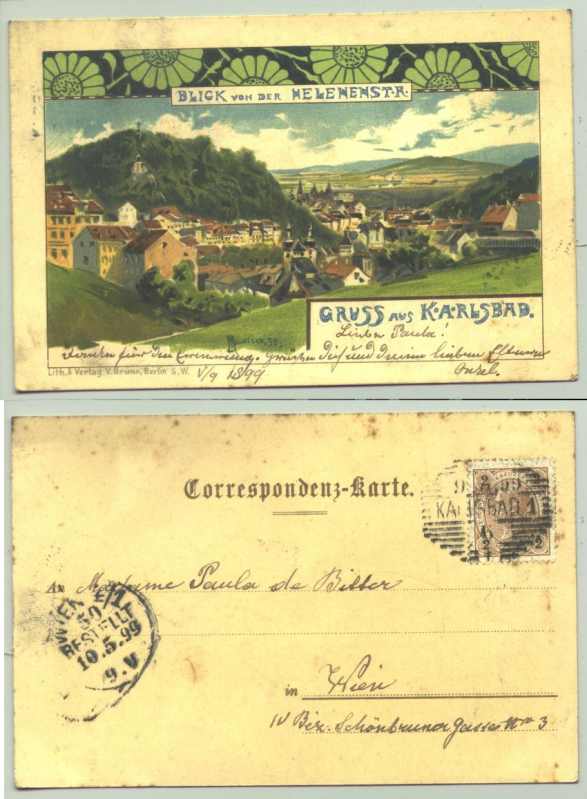 BLICK VON DER HELENENSTR.
GRUSS AUS KARLSBAD.
Liebe Paula!
für die Erinnerung. Grüssen Dich und deine lieben Eltern
Onzel.
Lith. & Verlag V. Bruno, Berlin S.W.
V/9 1899
Correspondenz-Karte.
9. 5. 99
KARLSBAD 1
An Madame Paula de Bitter
WIEN 4/1
50
BESTELLT
10.5.99
9.V
in Wien
IV Bez. Schönbrunner gasse Nro 3